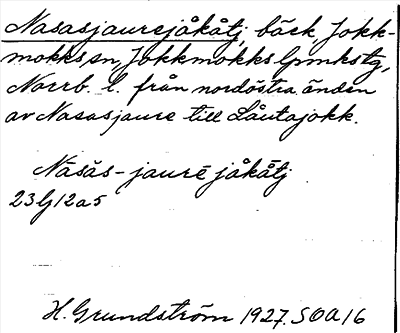 Nasasjaurejåkåtj, bäck, Jokk-
mokks sn, Jokkmokks lpmkstg,
Norrb. l. från nordöstra änden
av Nasasjaure till Låutajokk.
Násăs-jaurē jåkåtj
23G12a5
H. Grundström 1927. SOA16